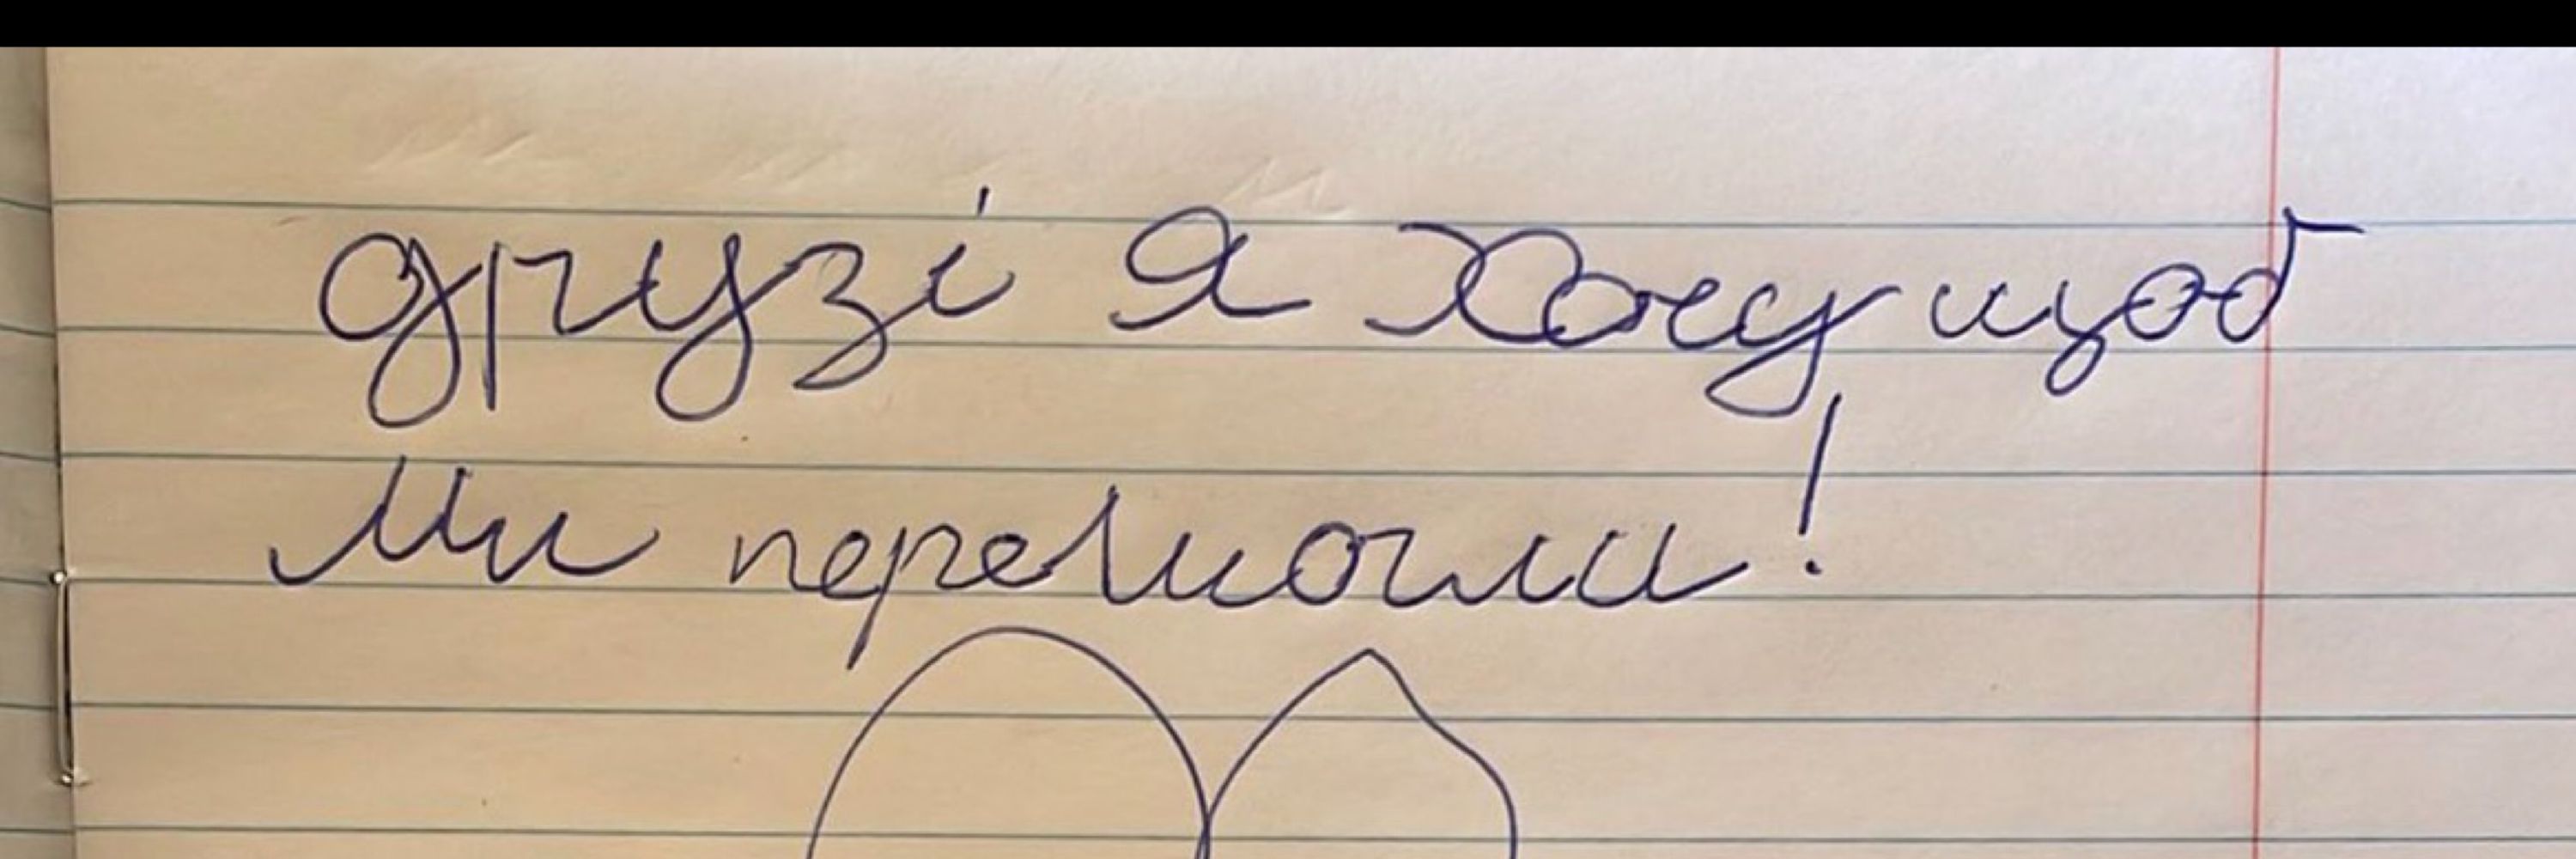 друзі я хочу щоб
Ми перемогли!